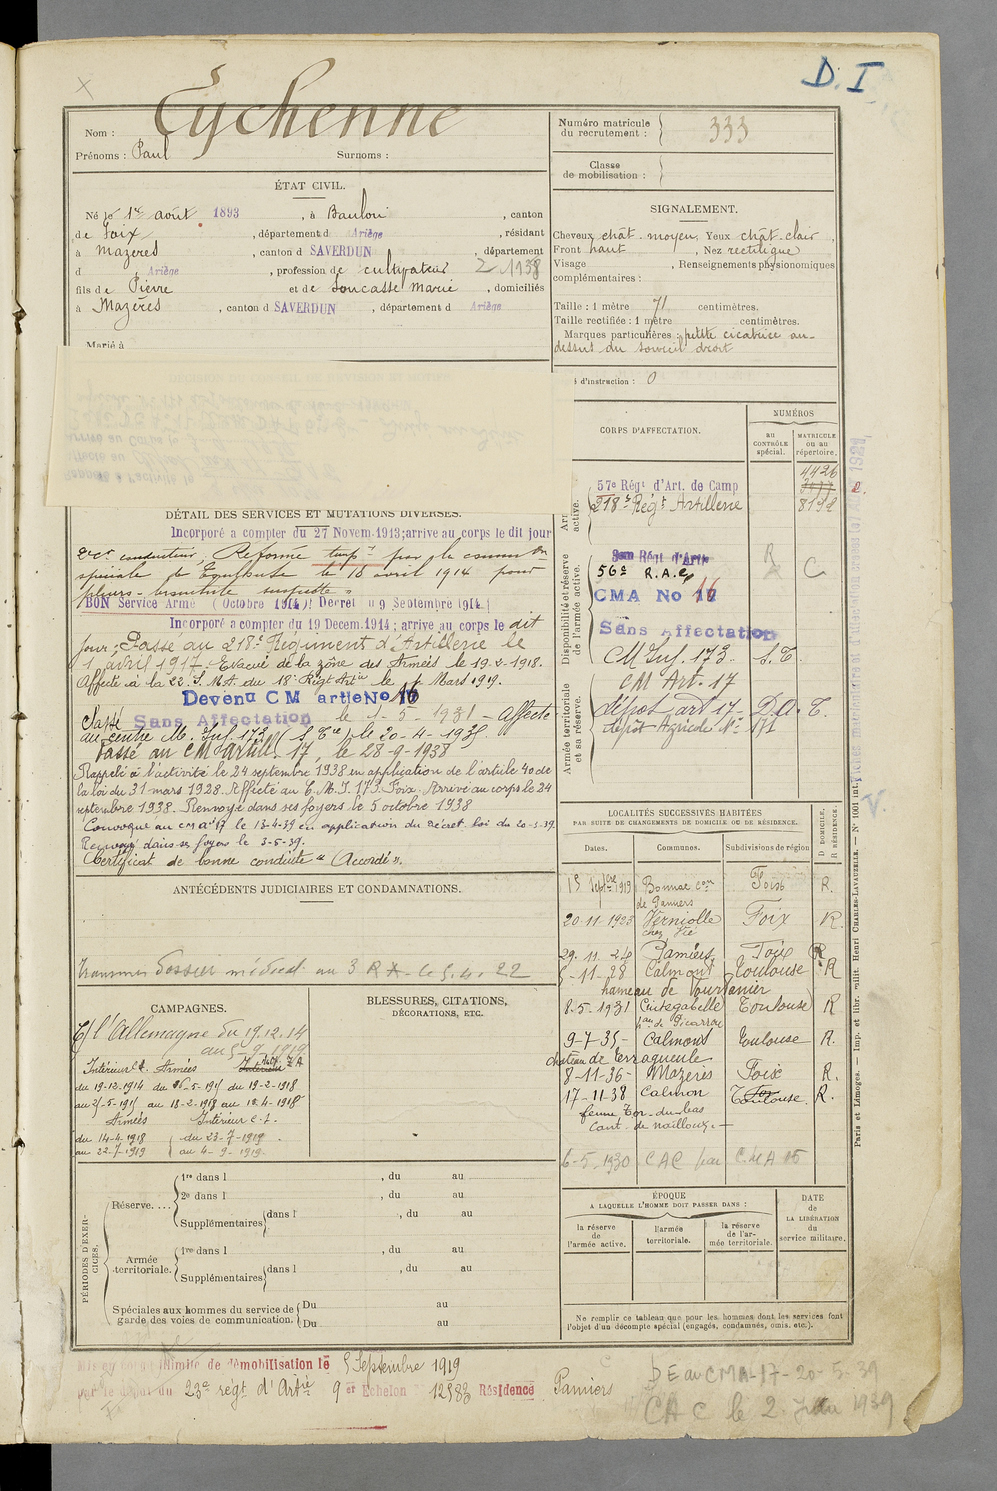 D. I
Nom : Eychenne
Prénoms : Paul Surnoms :
Numéro matricule du recrutement : 333
Classe de mobilisation :
ÉTAT CIVIL.
Né le 1er août 1893, à Baulou, canton
de Foix, département d Ariège, résidant
à Mazères, canton d SAVERDUN, département
d Ariège, profession de cultivateur
fils de Pierre et de Soucasse Marie, domiciliés
à Mazères, canton d SAVERDUN, département d Ariège
Marié à
SIGNALEMENT.
Cheveux chât. moyen, Yeux chât-clair,
Front haut, Nez rectiligne
Visage, Renseignements physionomiques
complémentaires :
Taille : 1 mètre 71 centimètres.
Taille rectifiée : 1 mètre centimètres.
Marques particulières : petite cicatrice au-
dessus du sourcil droit
d'instruction : 0
CORPS D'AFFECTATION.
NUMÉROS
au CONTRÔLE spécial.
MATRICULE ou au répertoire.
57e Régt d'Art. de Camp 4426
218e Régt Artillerie 8192
Disponibilité et réserve de l'armée active.
56e R.A.C
CMA No 16
Sans Affectation
C
CM Inf. 173. S.T.
Armée territoriale et sa réserve.
CM Art. 17
dépôt art 17 - D.A.T.
dépôt Agricole No 171
DÉTAIL DES SERVICES ET MUTATIONS DIVERSES.
Incorporé a compter du 27 Novem.1913;arrive au corps le dit jour
2e ct conducteur, Réformé tempre par la common
spéciale de Toulouse le 18 avril 1914 pour
BON Service Armé (Octobre 1914) Decret du 9 Septembre 1914
Incorporé a compter du 19 Decem.1914 ; arrive au corps le dit
jour, Passé au 218e Régiment d'Artillerie le
1 avril 1917. Evacué de la zône des Armées le 19-2-1918.
Affecté à la 22. S.M.A. du 18e Régt Artie le 1 Mars 1919.
Devenu CM artie No 16
Passé Sans Affectation le 1-5-1931 - Affecté
au centre M. Inf. 173 (S.T.) le 20-4-1935
Passé au CM Artill. 17, le 28-9-1938
Rappelé à l'activité le 24 septembre 1938 en application de l'article 40 de
la loi du 31 mars 1928. Affecté au C.M.I. 173. Foix. Arrivé au corps le 24
septembre 1938. Renvoyé dans ses foyers le 5 octobre 1938
Convoqué au CMA 17 le 13-4-39 en application du décret loi du 20-3-39.
Renvoyé dans ses foyers le 3-5-39.
Certificat de bonne conduite "Accordé".
ANTÉCÉDENTS JUDICIAIRES ET CONDAMNATIONS.
Transmis dossier médical au 3 R A - le 5. 4. 22
CAMPAGNES.
C/ l'Allemagne du 19.12.14
au 5 9 1919
Intérieur C.S. Armées
du 19-12-1914 du 26-5-1915 du 19-2-1918
au 25-5-1915 au 18-2-1918 au 13-4-1918
Armées Intérieur C.S.
du 14-4-1918 du 23-7-1919
au 22-7-1919 au 4-9-1919
BLESSURES, CITATIONS,
DÉCORATIONS, ETC.
LOCALITÉS SUCCESSIVES HABITÉES
PAR SUITE DE CHANGEMENTS DE DOMICILE OU DE RÉSIDENCE.
Dates. Communes. Subdivisions de région D DOMICILE. R RÉSIDENCE.
15 Septbre 1919 Bonnac con Foix R.
de Pamiers
20-11-1923 Verniolle Foix R.
chez Vié
29-11-24 Pamiers Foix R
5-11-28 Calmont Toulouse R
hameau de Tourtanier
8-5-1931 Cintegabelle Toulouse R
hau de Picarrou
9-7-35 - Calmont Toulouse R.
château de Terraqueuse
8-11-36 - Mazères Foix R.
17-11-38 Calmon Toulouse R.
ferme Bor-du-bas
Cant. de nailloux
6-5-1930 CAC par C.M.A 16
PÉRIODES D'EXERCICES.
Réserve.... 1re dans l , du au
2e dans l , du au
Supplémentaires dans l , du au
Armée territoriale. 1re dans l , du au
Supplémentaires dans l , du au
Spéciales aux hommes du service de garde des voies de communication. Du au
Du au
ÉPOQUE
A LAQUELLE L'HOMME DOIT PASSER DANS :
la réserve de l'armée active.
l'armée territoriale.
la réserve de l'armée territoriale.
DATE de LA LIBÉRATION du service militaire.
Ne remplir ce tableau que pour les hommes dont les services font
l'objet d'un décompte spécial (engagés, condamnés, omis, etc.).
Mis en congé illimité de démobilisation le 5 Septembre 1919
par le dépôt du 23e régt d'Artie 9er Echelon 12583 Résidence Pamiers
DE au CMA-17-20-5-39
CAC le 2 Juin 1939
Paris et Limoges. — Imp. et libr. milit. Henri CHARLES-LAVAUZELLE. — N° 1001 int.